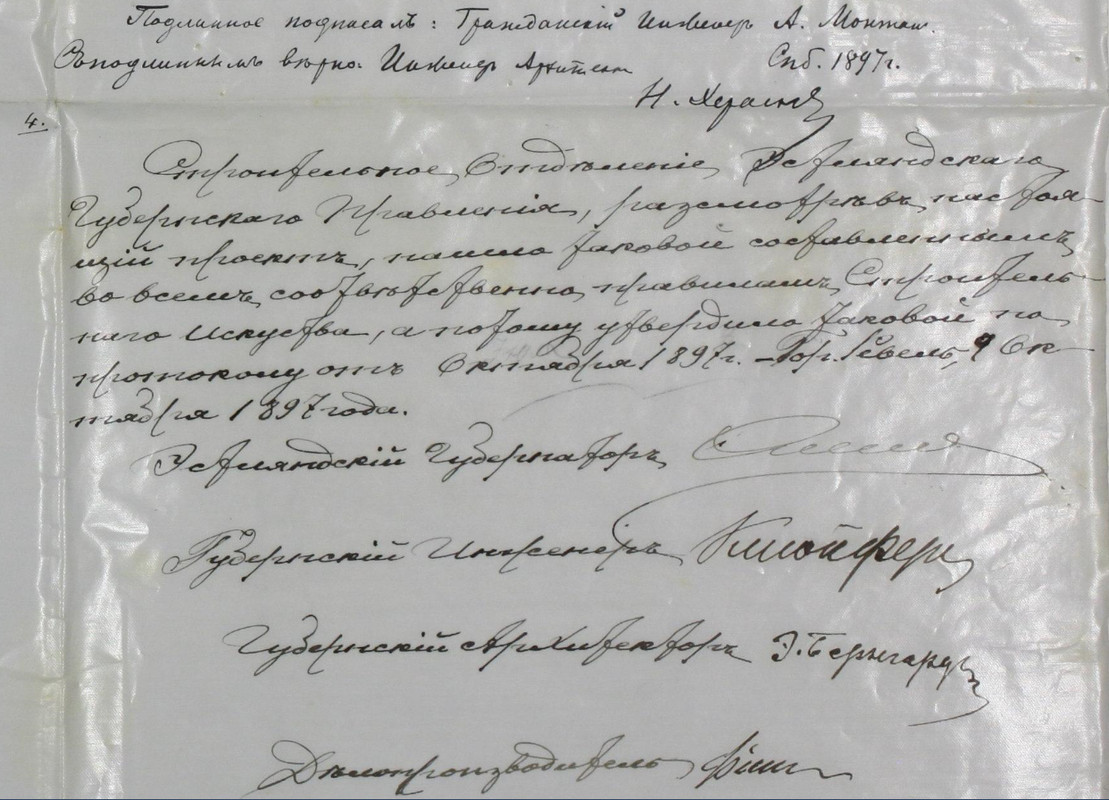 Подлинное подписалъ: Гражданскій Инженеръ А. Монтаг.
Съ подлиннымъ вѣрно: Инженеръ Архитект Спб. 1897г.
Н.
4.
Строительное Отдѣленіе Эстляндскаго
Губернскаго Правленія, разсмотрѣвъ настоя-
щій проектъ, нашло таковой составленнымъ
во всемъ соотвѣтственно правиламъ Строитель-
наго Искуства, а потому утвердило таковой по
протоколу отъ Октября 1897г. – Гор. Ревель, 9 Ок-
тября 1897 года.
Эстляндскій Губернаторъ
Губернскій Инженеръ
Губернскій Архитекторъ Э. Бернгардъ
Дѣлопроизводитель